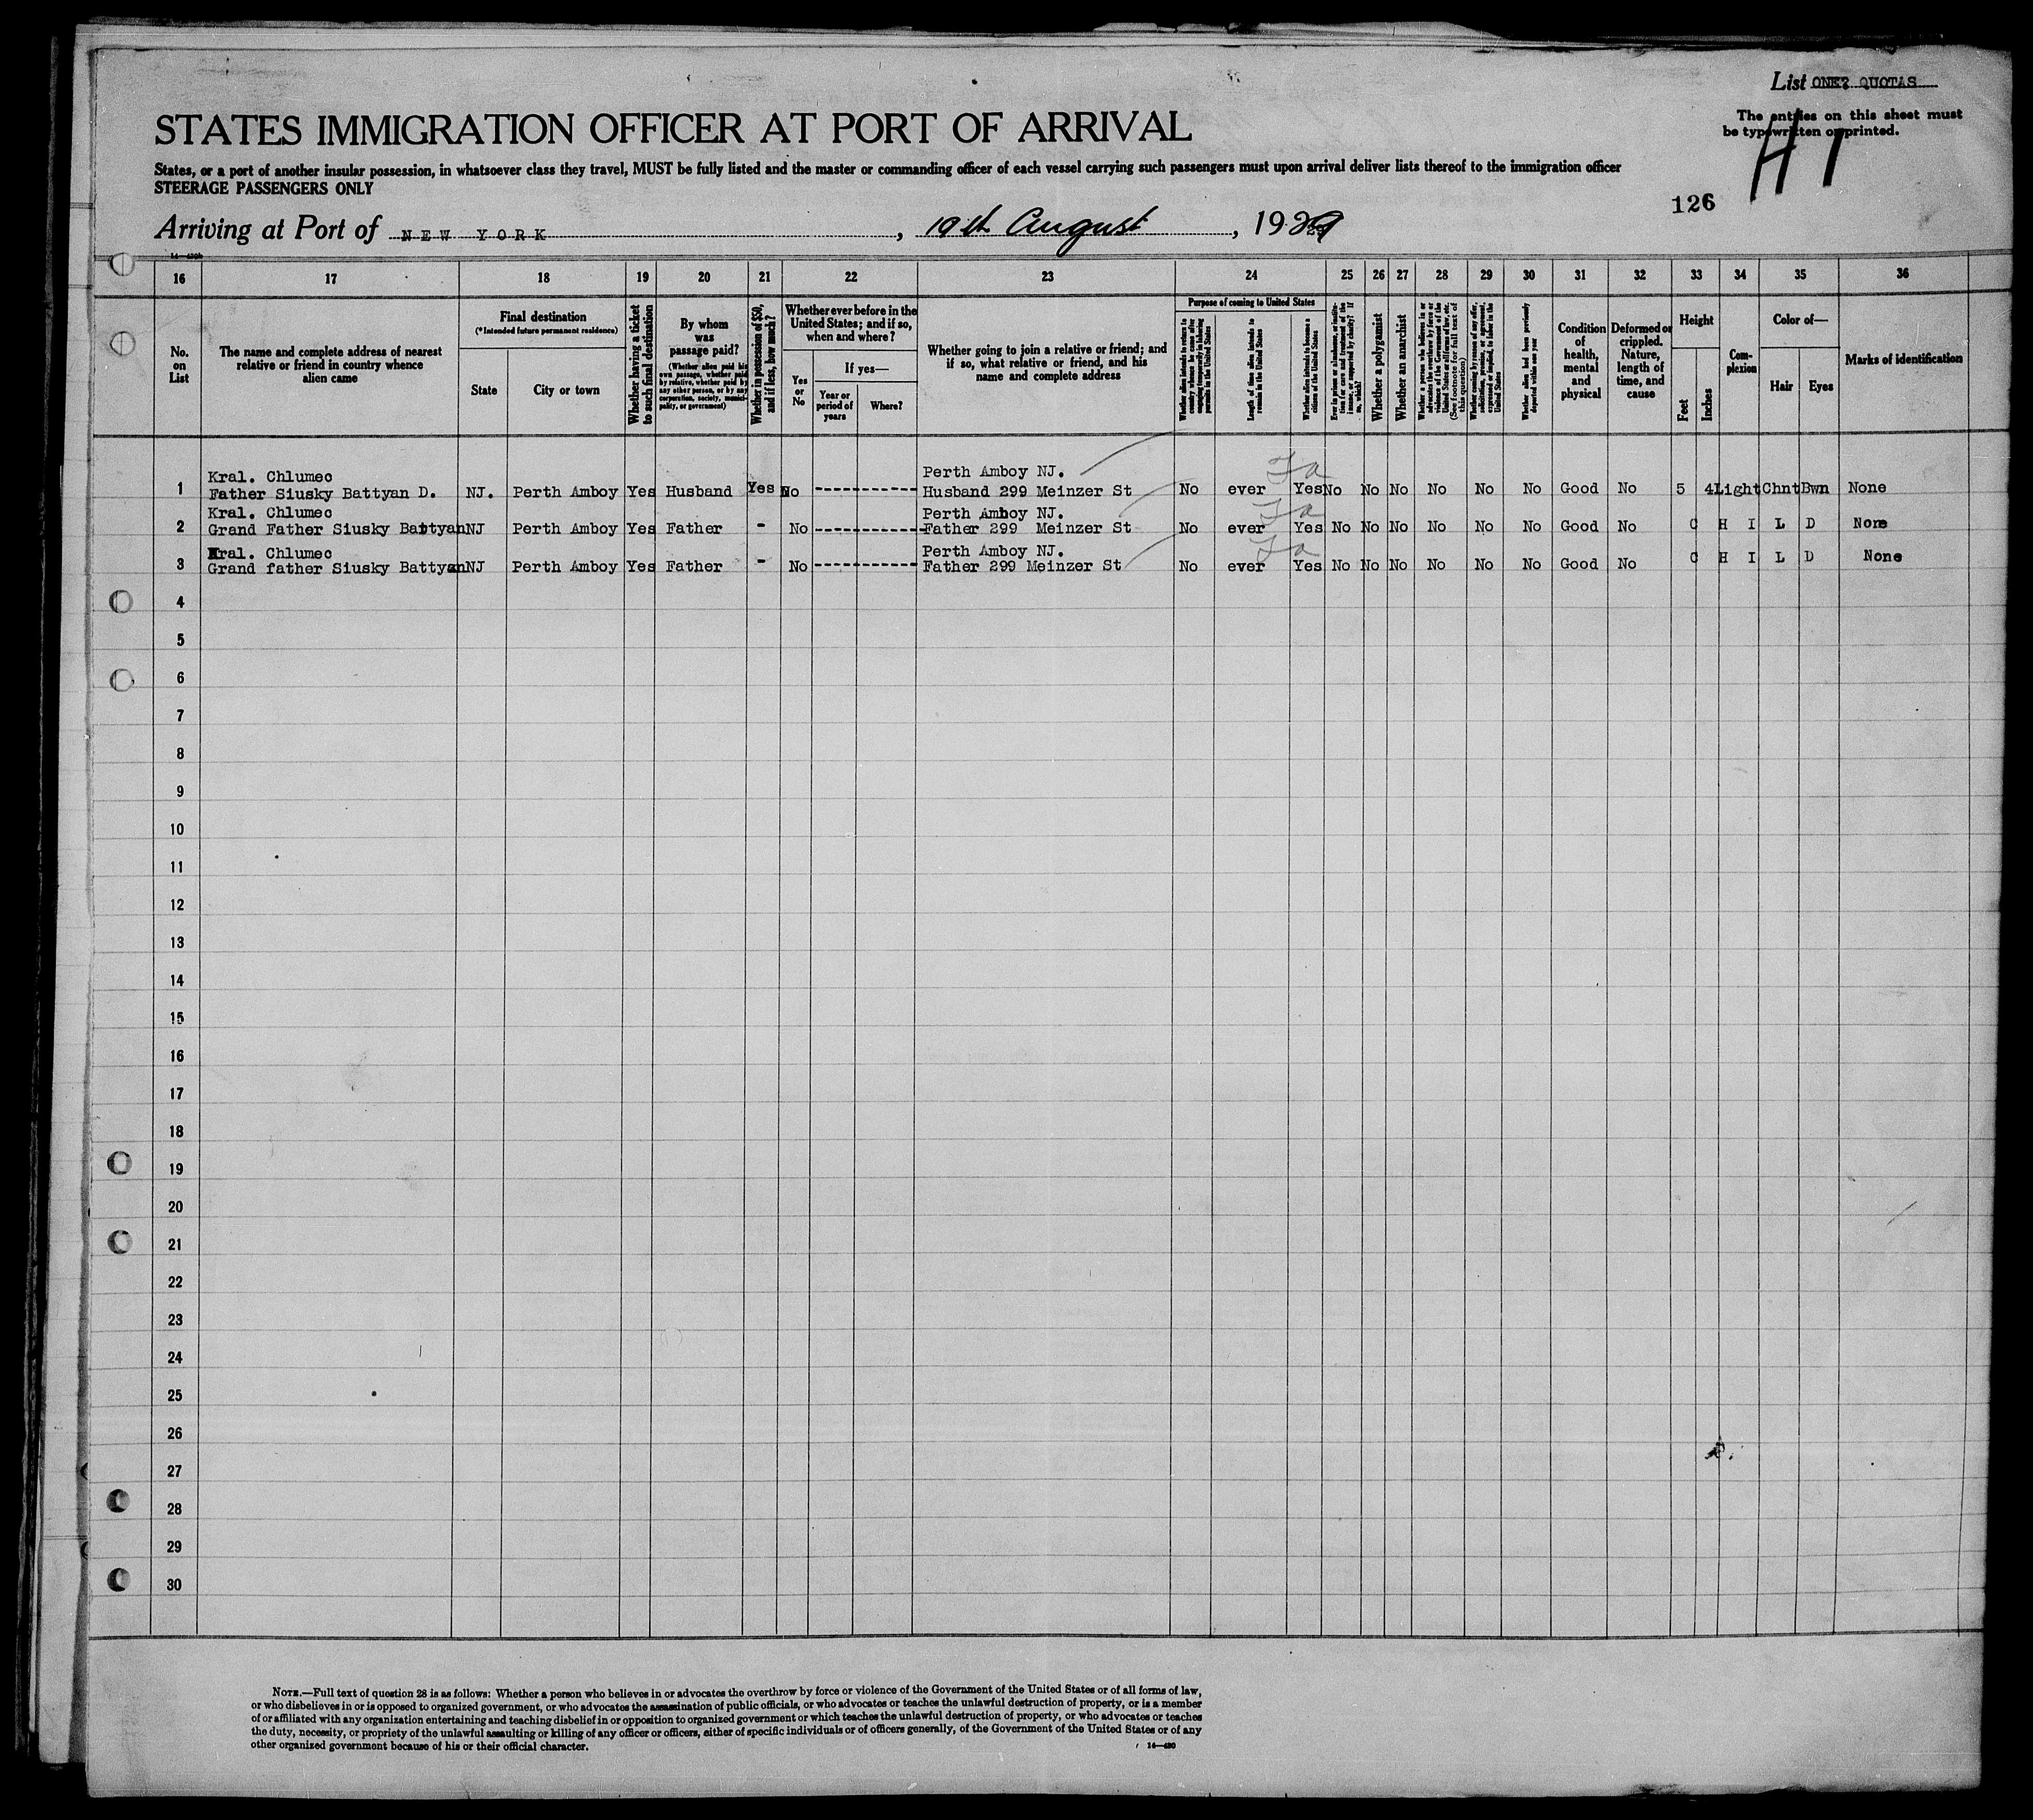 List ONE? QUOTAS
The entries on this sheet must
be typewritten or printed.
H 1
STATES IMMIGRATION OFFICER AT PORT OF ARRIVAL
States, or a port of another insular possession, in whatsoever class they travel, MUST be fully listed and the master or commanding officer of each vessel carrying such passengers must upon arrival deliver lists thereof to the immigration officer
STEERAGE PASSENGERS ONLY
126
Arriving at Port of NEW YORK, 19th August, 1929
16 17 18 19 20 21 22 23 24 25 26 27 28 29 30 31 32 33 34 35 36
No. on List
The name and complete address of nearest relative or friend in country whence alien came
Final destination
(*Intended future permanent residence)
State
City or town
Whether having a ticket to such final destination
By whom was passage paid?
(Whether alien paid his own passage, whether paid by relative, whether paid by any other person, or by any corporation, society, municipality, or government)
Whether in possession of $50, and if less, how much?
Whether ever before in the United States; and if so, when and where?
Yes or No
If yes—
Year or period of years
Where?
Whether going to join a relative or friend; and if so, what relative or friend, and his name and complete address
Purpose of coming to United States
Length of time alien intends to remain in the United States
Whether alien intends to become a citizen of the United States
Whether a polygamist
Whether an anarchist
Whether alien had been previously deported within one year
Condition of health, mental and physical
Deformed or crippled. Nature, length of time, and cause
Height
Feet
Inches
Complexion
Color of—
Hair
Eyes
Marks of identification
Kral. Chlumec Perth Amboy NJ.
1 Father Siusky Battyan D. NJ. Perth Amboy Yes Husband Yes No ------------ Husband 299 Meinzer St No ever Yes No No No No No No Good No 5 4 Light Chnt Bwn None
Kral. Chlumec Perth Amboy NJ.
2 Grand Father Siusky Battyan NJ Perth Amboy Yes Father - No ------------ Father 299 Meinzer St No ever Yes No No No No No No Good No C H I L D None
Kral. Chlumec Perth Amboy NJ.
3 Grand father Siusky Battyan NJ Perth Amboy Yes Father - No ------------ Father 299 Meinzer St No ever Yes No No No No No No Good No C H I L D None
4
5
6
7
8
9
10
11
12
13
14
15
16
17
18
19
20
21
22
23
24
25
26
27
28
29
30
NOTE.—Full text of question 28 is as follows: Whether a person who believes in or advocates the overthrow by force or violence of the Government of the United States or of all forms of law,
or who disbelieves in or is opposed to organized government, or who advocates the assassination of public officials, or who advocates or teaches the unlawful destruction of property, or is a member
of or affiliated with any organization entertaining and teaching disbelief in or opposition to organized government or which teaches the unlawful destruction of property, or who advocates or teaches
the duty, necessity, or propriety of the unlawful assaulting or killing of any officer or officers, either of specific individuals or of officers generally, of the Government of the United States or of any
other organized government because of his or their official character.
14—430